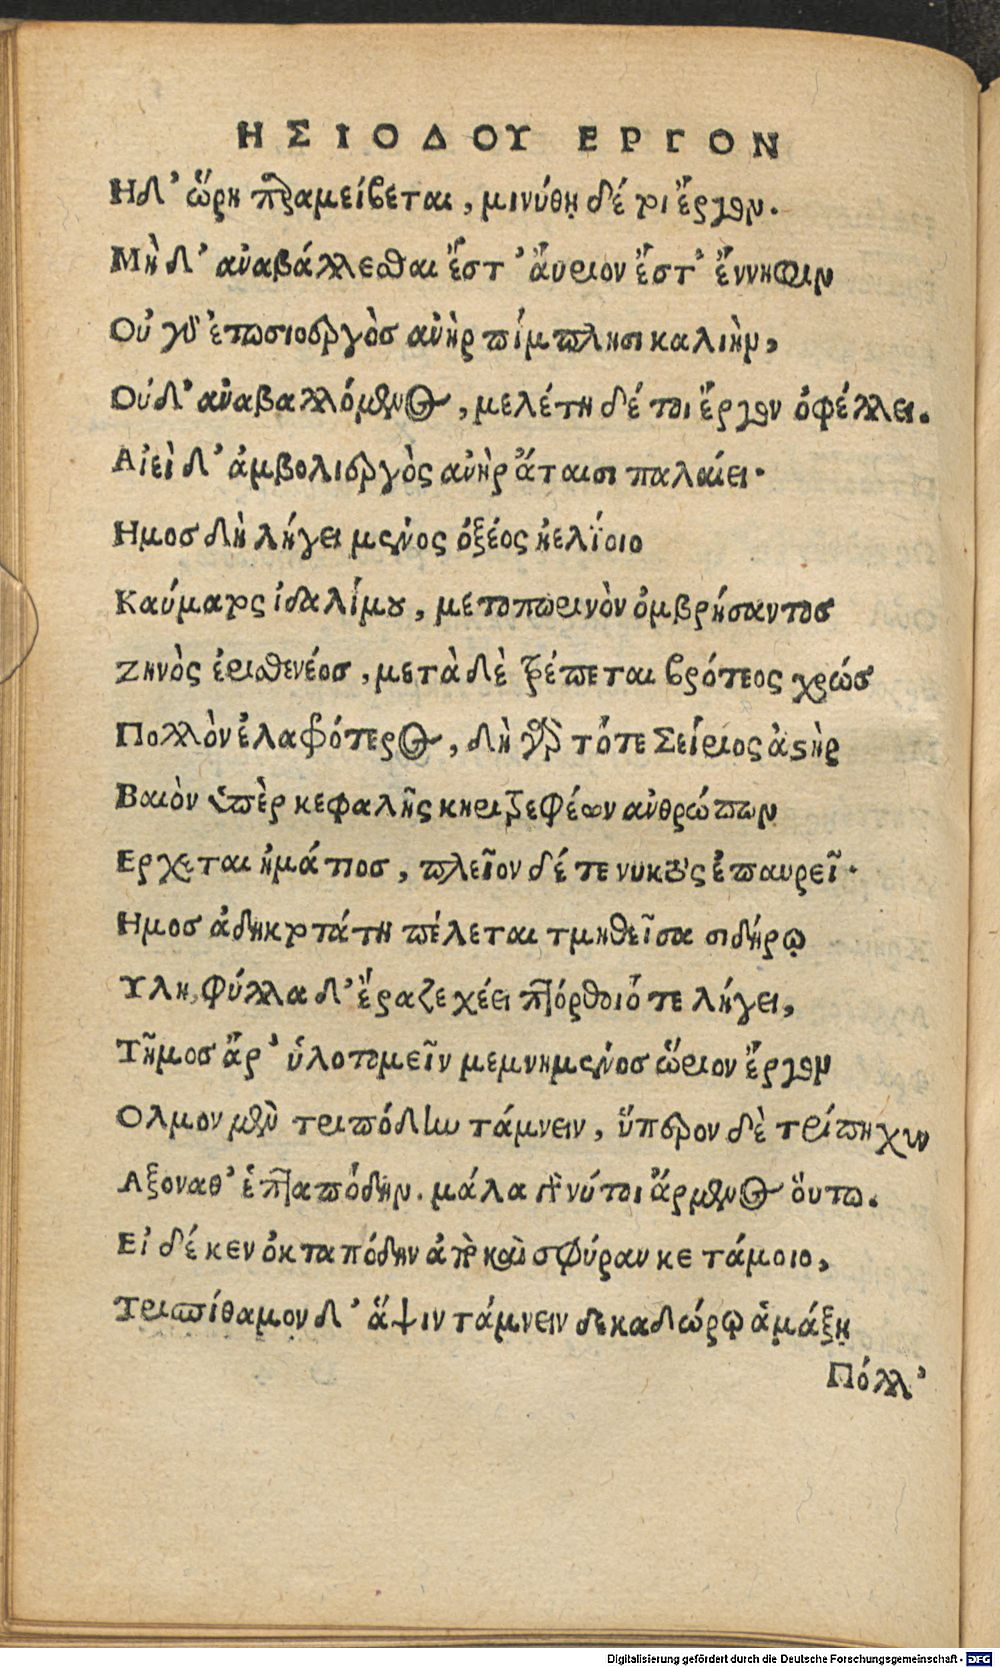 ΗΣΙΟΔΟΥ ΕΡΓΟΝ
Ηδ' ὥρη παραμείβεται, μινύθῃ δέ τοι ἔργον.
Μὴ δ' ἀναβάλλεσθαι ἔστ' ἄυριον ἔστ' ἔννηφιν
Οὐ γὰρ ἐτωσιοεργὸσ ἀνὴρ πίμπλησι καλιὴν,
Οὐδ' ἀναβαλλόμενος, μελέτη δέ τοι ἔργον ὀφέλλει.
Αἰεὶ δ' ἀμβολιεργὸς ἀνὴρ ἄταισι παλαίει.
Ημοσ δὴ λήγει μένος ὀξέος ἠελίοιο
Καύματος ἰδαλίμου, μετοπωρινὸν ὀμβρήσαντοσ
Ζηνὸς ἐρισθενέοσ, μετὰ δὲ τρέπεται βρότεος χρώσ
Πολλὸν ἐλαφρότερος, δὴ γὰρ τότε Σείριος ἀστὴρ
Βαιὸν ὑπὲρ κεφαλῆς κηριτρεφέων ἀνθρώπων
Ερχεται ἠμάτιοσ, πλεῖον δέ τε νυκτὸς ἐπαυρεῖ.
Ημοσ ἀδηκτοτάτη πέλεται τμηθεῖσα σιδήρῳ
Υλη, φύλλα δ' ἔραζε χέει πτόρθοιό τε λήγει,
Τῆμοσ ἄρ' ὑλοτομεῖν μεμνημένοσ ὥριον ἔργον
Ολμον μὲν τριπόδην τάμνειν, ὕπερον δὲ τρίπηχυν
Αξοναθ' ἑπταπόδην. μάλα γάρ νύ τοι ἄρμενος ὅυτω.
Εἰ δέ κεν ὀκταπόδην ἀπὸ καὶ σφύραν κε τάμοιο,
Τριπίθαμον δ' ἅψιν τάμνειν δεκαδώρῳ ἁμάξῃ
Πόλλ'
Digitalisierung gefördert durch die Deutsche Forschungsgemeinschaft - DFG